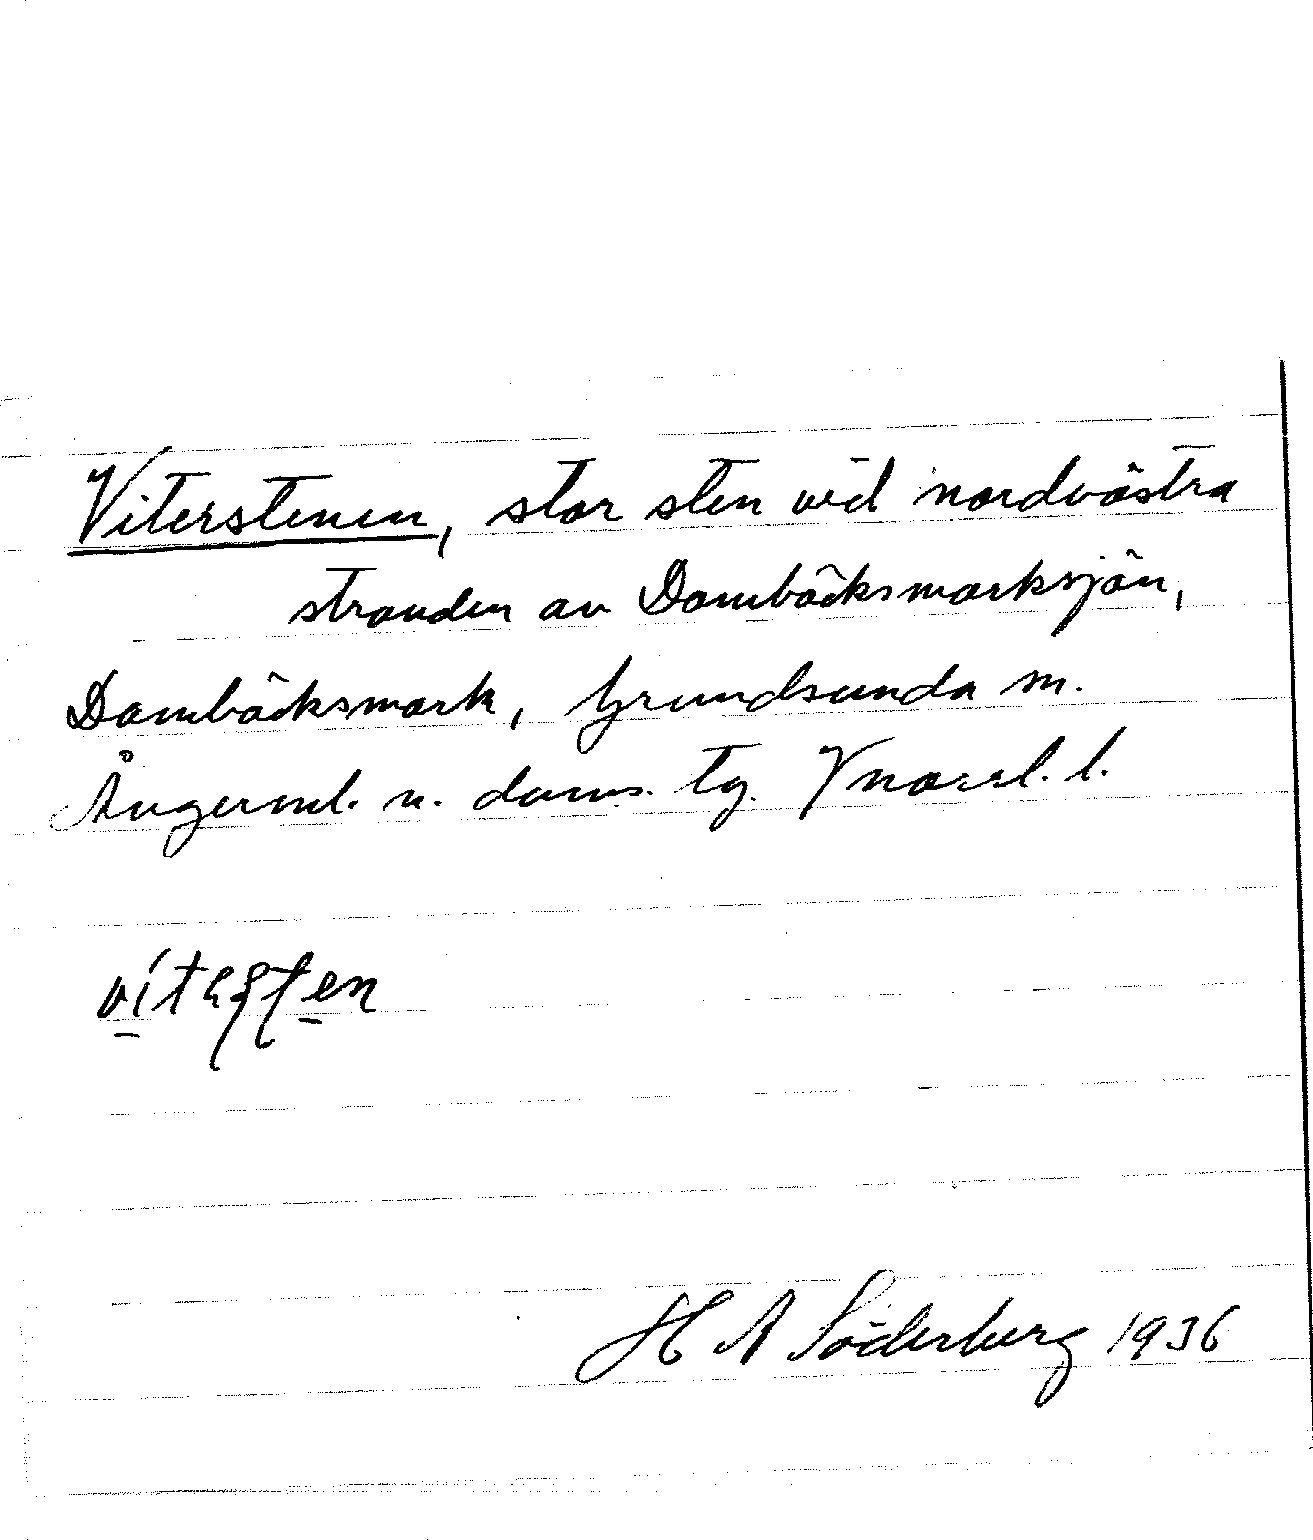 Viterstenen, stor sten vid nordvästra
stranden av Dombäcksmarksjön,
Dombäcksmark, Grundsunda sn.
Ångerml. n. doms. tg. Vnorrl. l.
H A Söderberg 1936